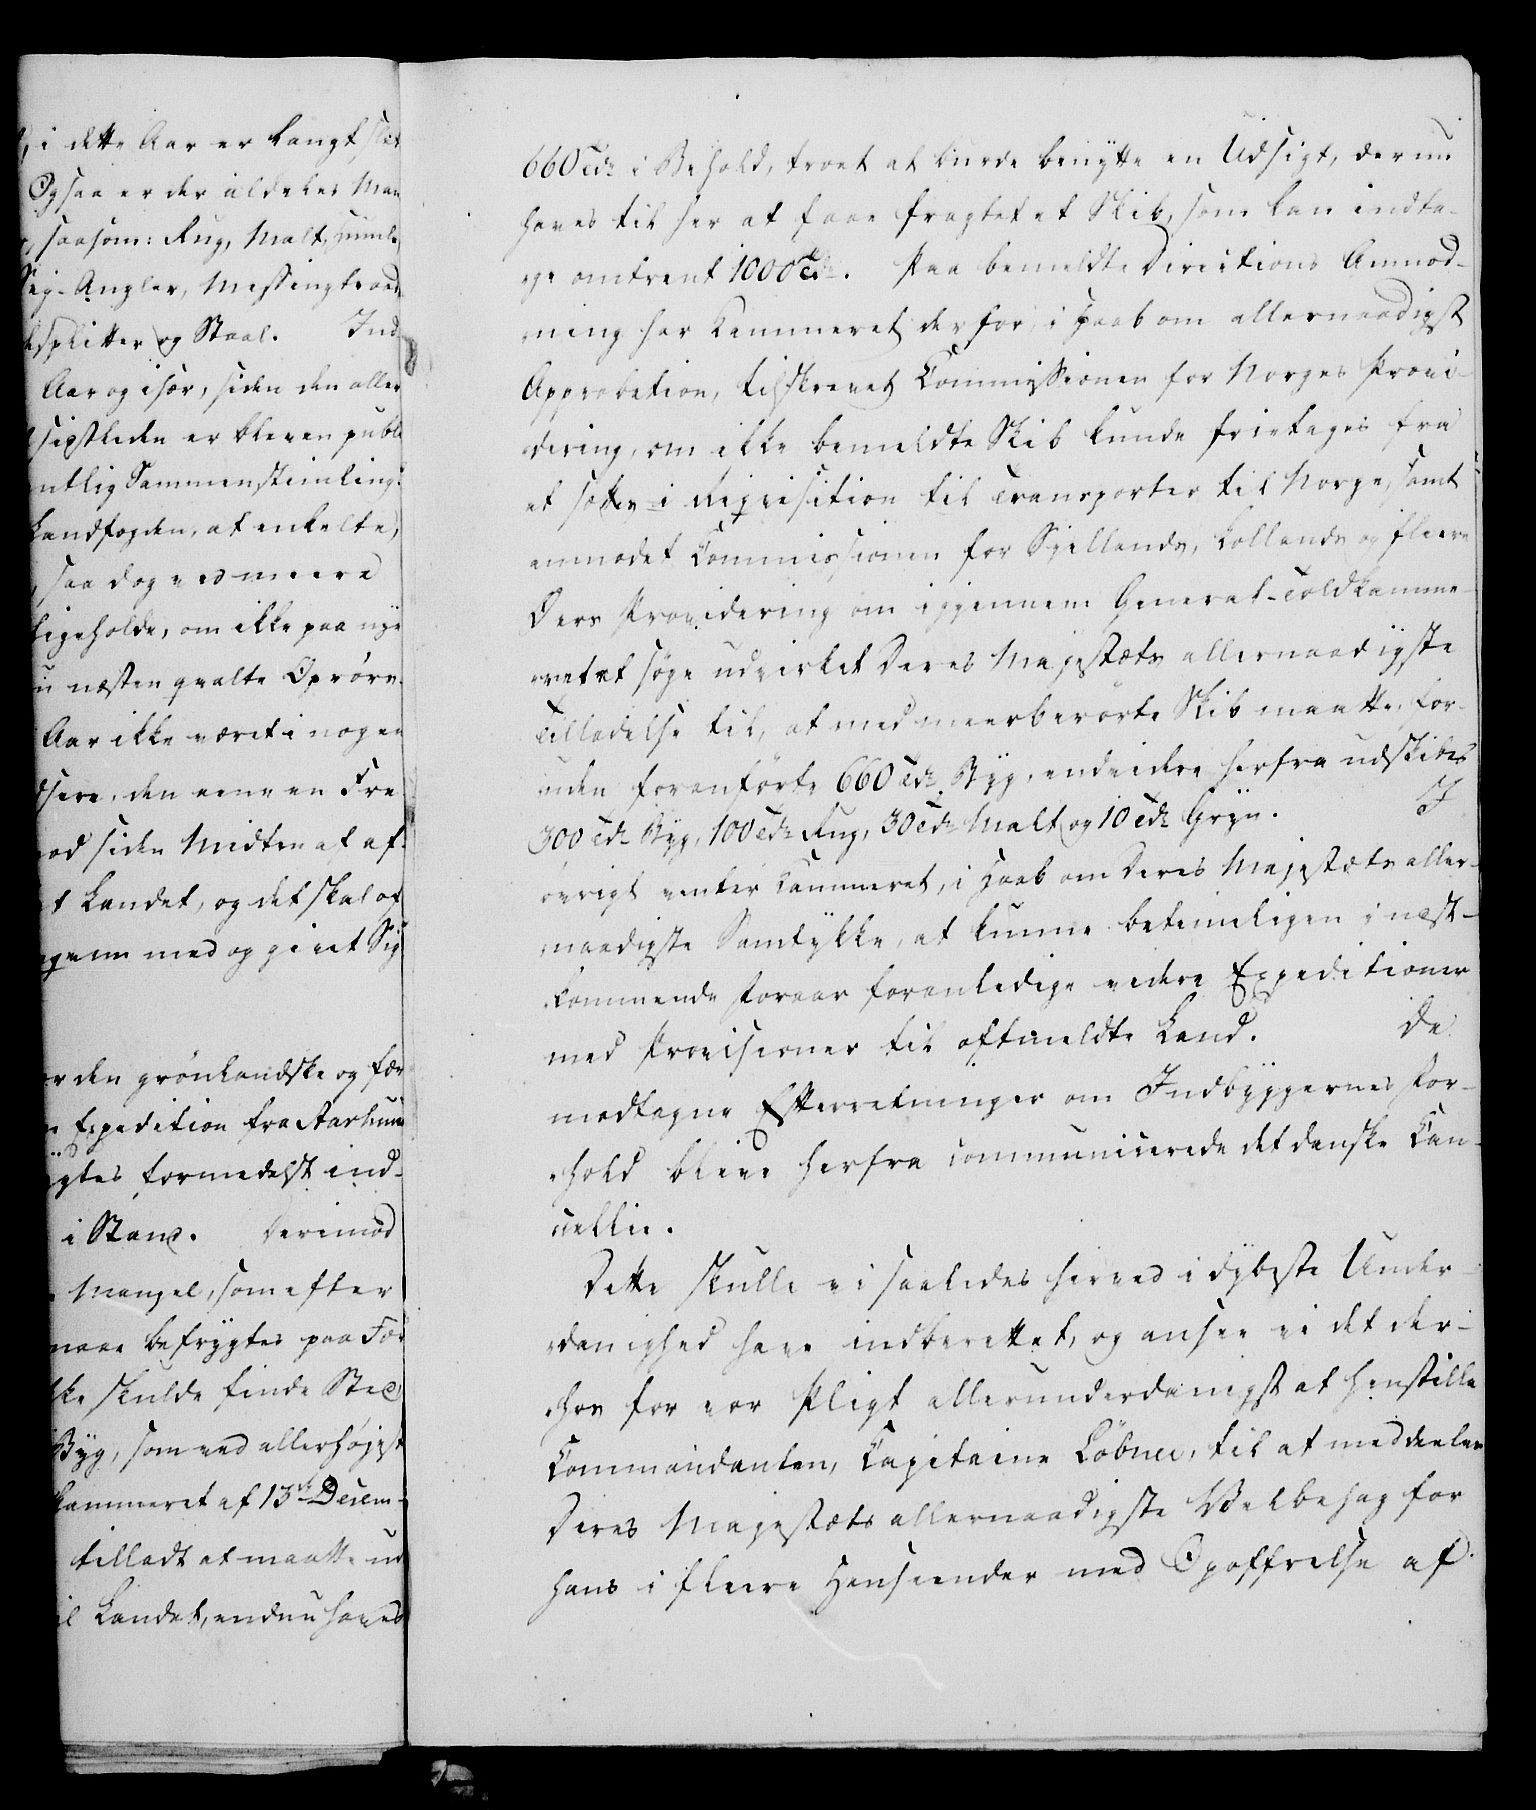 i dette Aar er langt slet
Ogsaa er der aldeles Man
saasom: Rug, Malt, Humle
Angler, Messingtraad
splitter og Staal. Ind-
Aar og isør, siden den aller
sidstleden er bleven publi
ntlig Sammenstimling
Landfogden, at enkelte,
saa dog ved meere
ligeholde, om ikke paa nye
u næsten qvalte Oprörs-
Aar ikke været i nogen
den eene en Fre
od siden Midten af af-
t Landet, og det skal of
igienn med og givet Sig
or den grönlandske og fær
Expedition fra Aarhuus
gtes formedelst ind-
i Stand. Derimod
Mangel, som efter
maae befrygtes paa Fær
ke skulde finde Sted
Byg, som ved allerhöjest
Kammeret af 13de Decem-
tilladt at maatte ud
il Landet, endnu haves
660 Tdr i Behold, troet at burde benytte en Udsigt, der nu
haves til her at faae fragtet et Skib, som kan indta-
ge omtrent 1000 Tdr. Paa bemeldte Directions Anmod-
ning har Kammeret derfor, i Haab om allernaadigst
Approbation, tilskrevet Commissionen for Norges Provi-
dering, om ikke bemeldte Skib kunde fritages fra
at sættes i Reqvisition til Transporter til Norge, samt
anmodet Commissionen for Sjellands, Lollands og fleere
Öers Providering om igjennem General-Toldkamme-
ret at søge udvirket Deres Majestæts allernaadigste
Tilladelse til, at med meerberørte Skib maatte, for-
uden foranførte 660 Tdr. Byg, endvidere herfra udskibes
300 Tdr Byg, 100 Tdr Rug, 30 Tdr Malt og 10 Tdr Gryn. I
övrigt venter Kammeret, i Haab om Deres Majestæts aller-
naadigste Samtykke, at kunne betimeligen i næst-
kommende Foraar foranledige videre Expeditioner
med Provisioner til oftmeldte Land. De
modtagne Efterretninger om Indbyggernes For-
hold bleve herfra communicerede det danske Can-
cellie.
Dette skulle vi saaledes herved i dybeste Under-
danighed have indberettet, og ansee vi det der-
hos for vor Pligt allerunderdanigst at henstille
Commandanten, Capitaine Löbner, til at meddeeles
Deres Majestæts allernaadigste Velbehag for
hans i fleere Henseender med Opoffrelse af